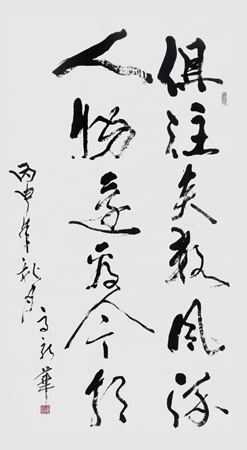 俱往矣数风流
人物还看今朝
丙申年秋月高新華